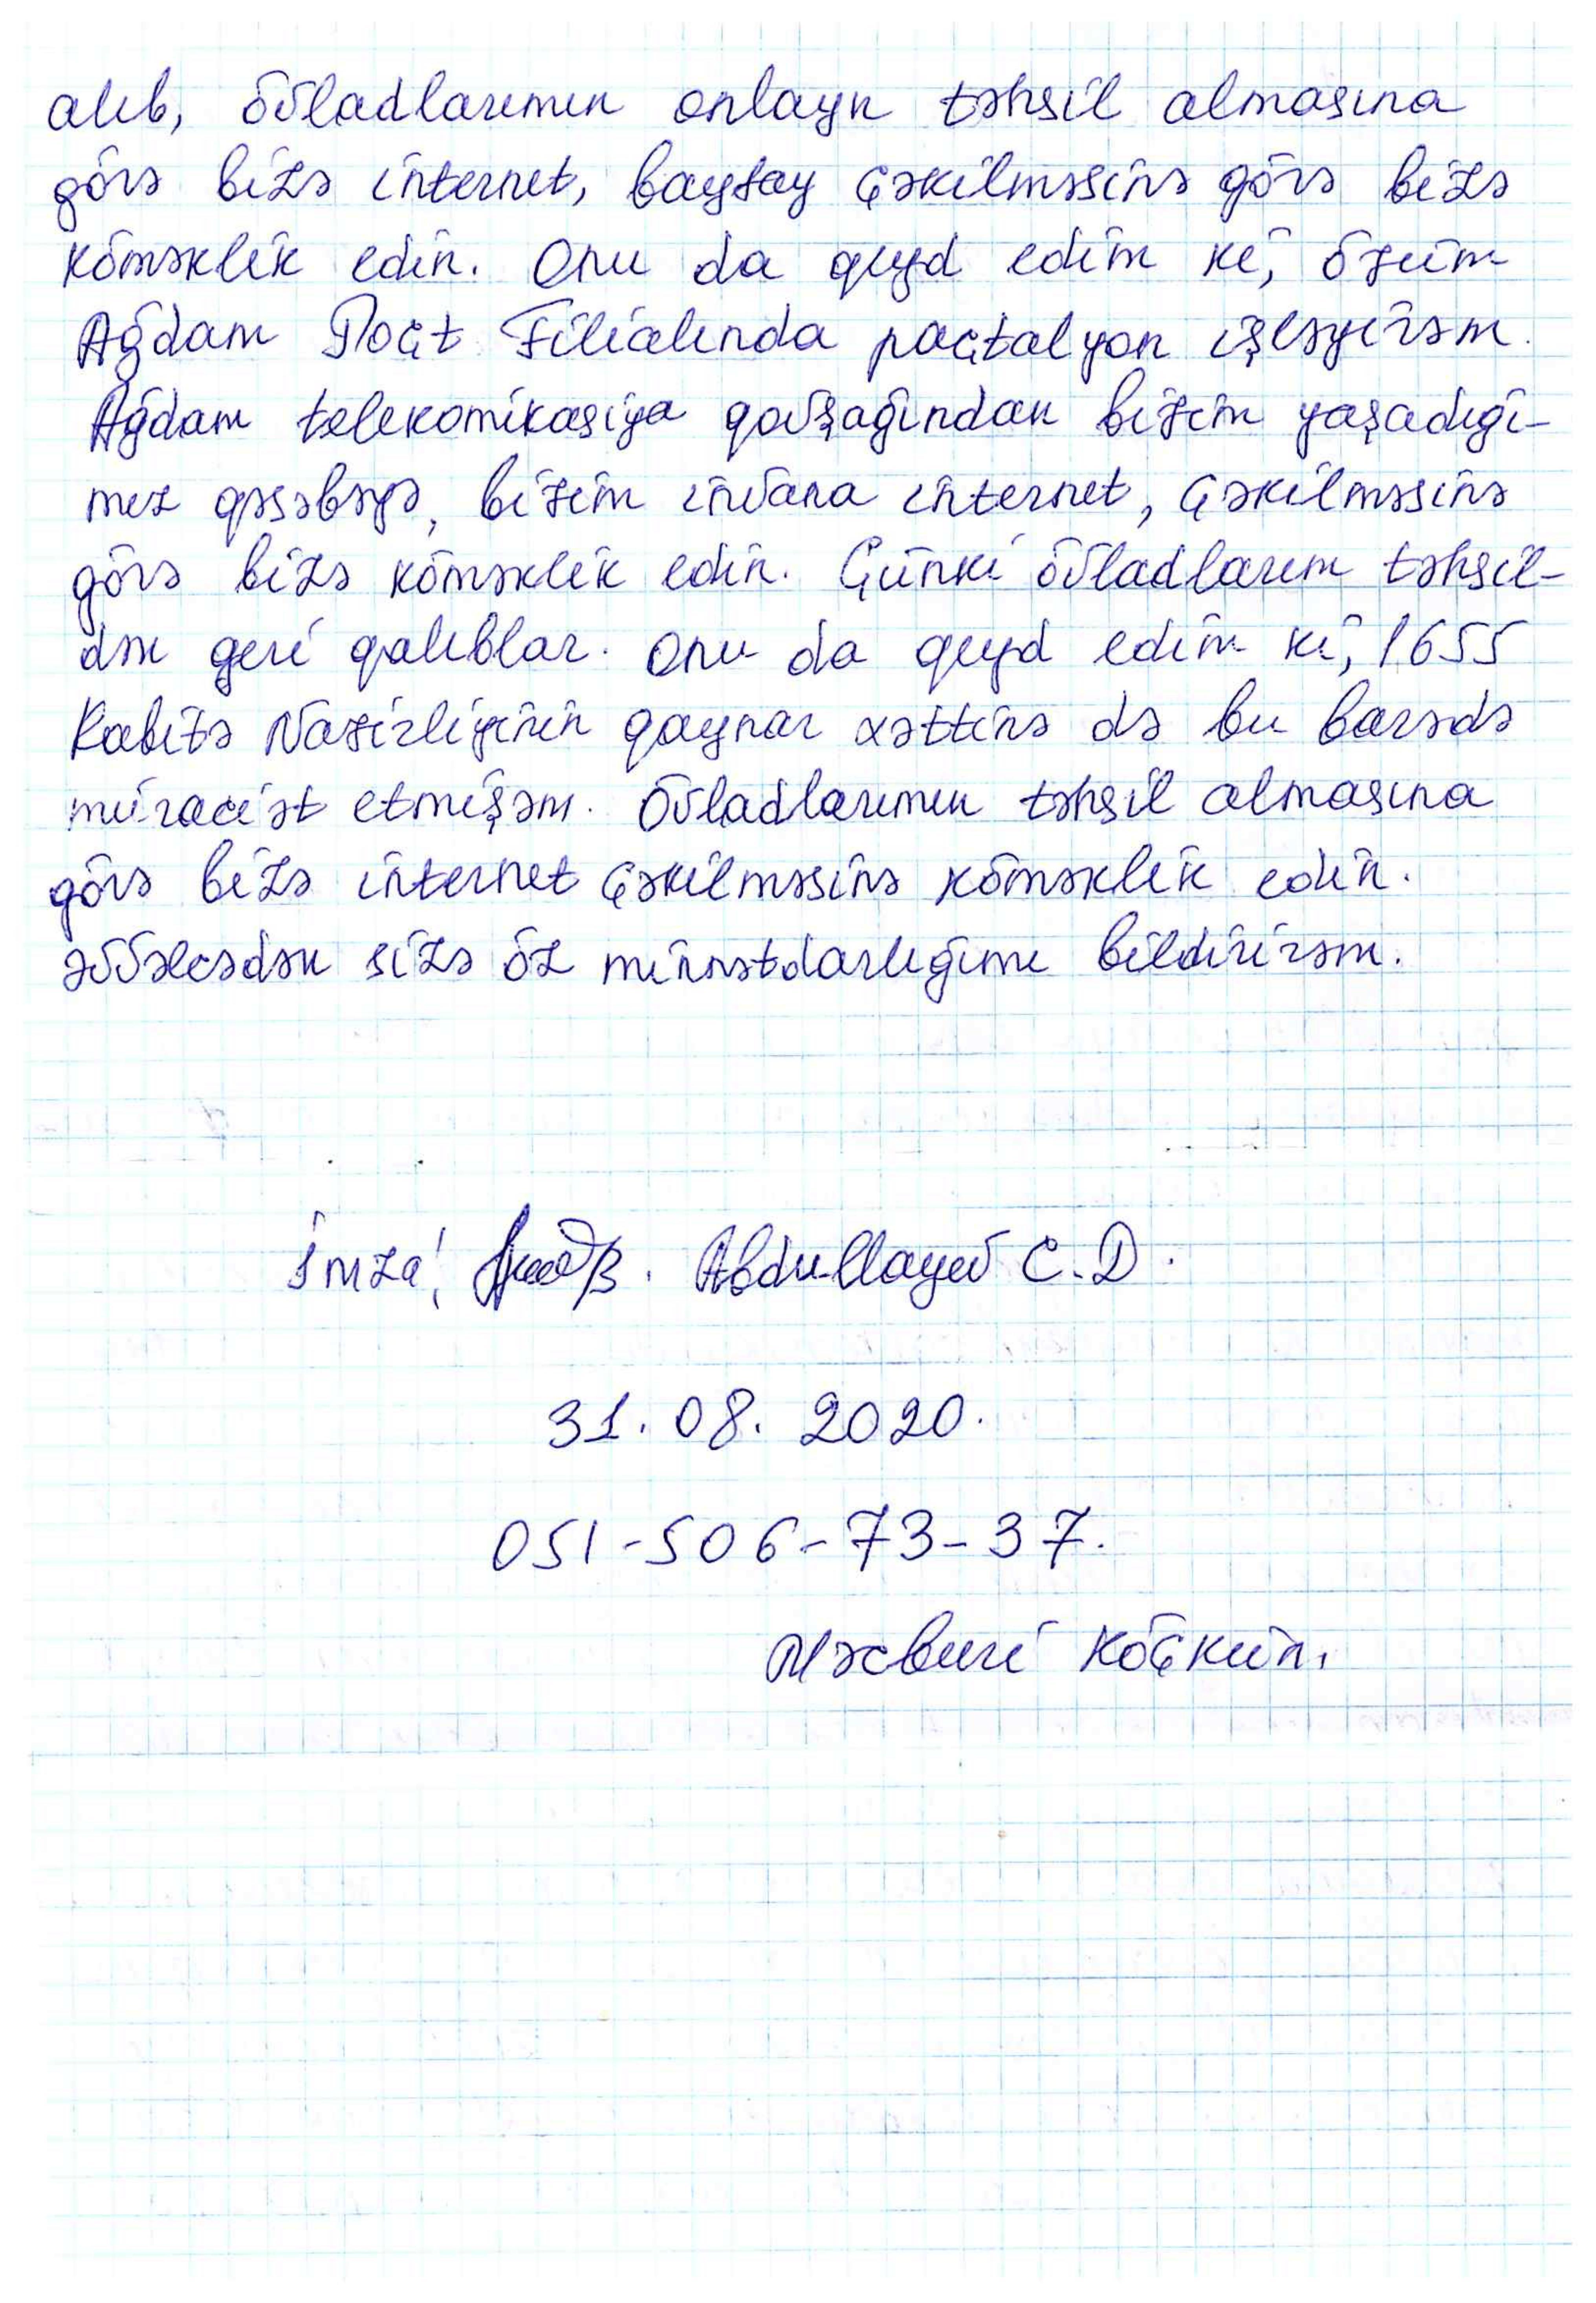 alıb, övladlarımın onlayn təhsil almasına
görə bizə internet, bayfay çəkilməsinə görə bizə
köməklik edin. Onu da qeyd edim ki, özüm
Ağdam Poçt Filialında paçtalyon işləyirəm.
Ağdam telekomikasiya qovşağından bizim yaşadığı-
mız qəsəbəyə, bizim ünvana internet, çəkilməsinə
görə bizə köməklik edin. Çünki övladlarım təhsil-
dən geri qalıblar. Onu da qeyd edim ki, 1655
Rabitə Nazirliyinin qaynar xəttinə də bu barədə
müraciət etmişəm. Övladlarımın təhsil almasına
görə bizə internet çəkilməsinə köməklik edin.
əvvəlcədən sizə öz minnətdarlığımı bildirirəm.
İmza: Abdullayev C.D.
31.08.2020.
051-506-73-37.
Məcburi köçkün.